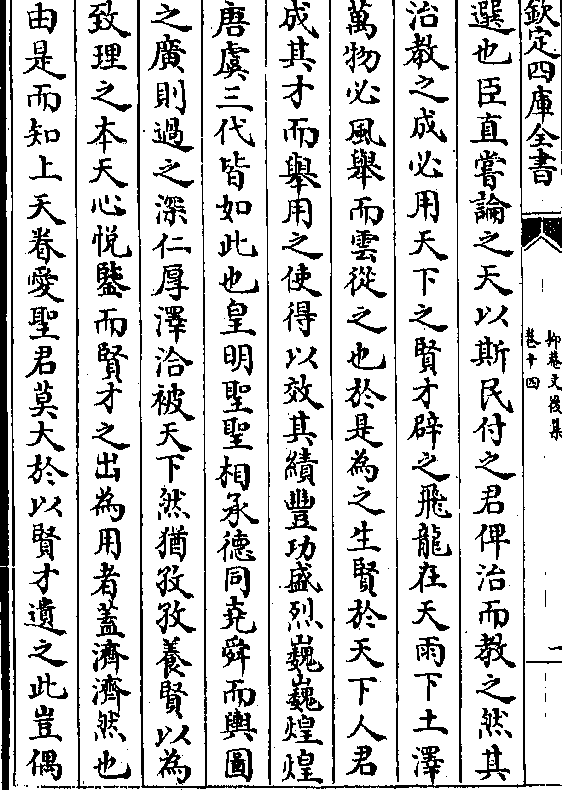 欽定四庫全書
抑菴文後集
卷十四
一
選也臣直嘗論之天以斯民付之君俾治而教之然其
治教之成必用天下之賢才辟之飛龍在天雨下土澤
萬物必風舉而雲從之也於是為之生賢於天下人君
成其才而舉用之使得以效其績豐功盛烈巍巍煌煌
唐虞三代皆如此也皇明聖聖相承德同堯舜而輿圖
之廣則過之深仁厚澤洽被天下然猶孜孜養賢以為
致理之本天心悅鑒而賢才之出為用者蓋濟濟然也
由是而知上天眷愛聖君莫大於以賢才遺之此豈偶